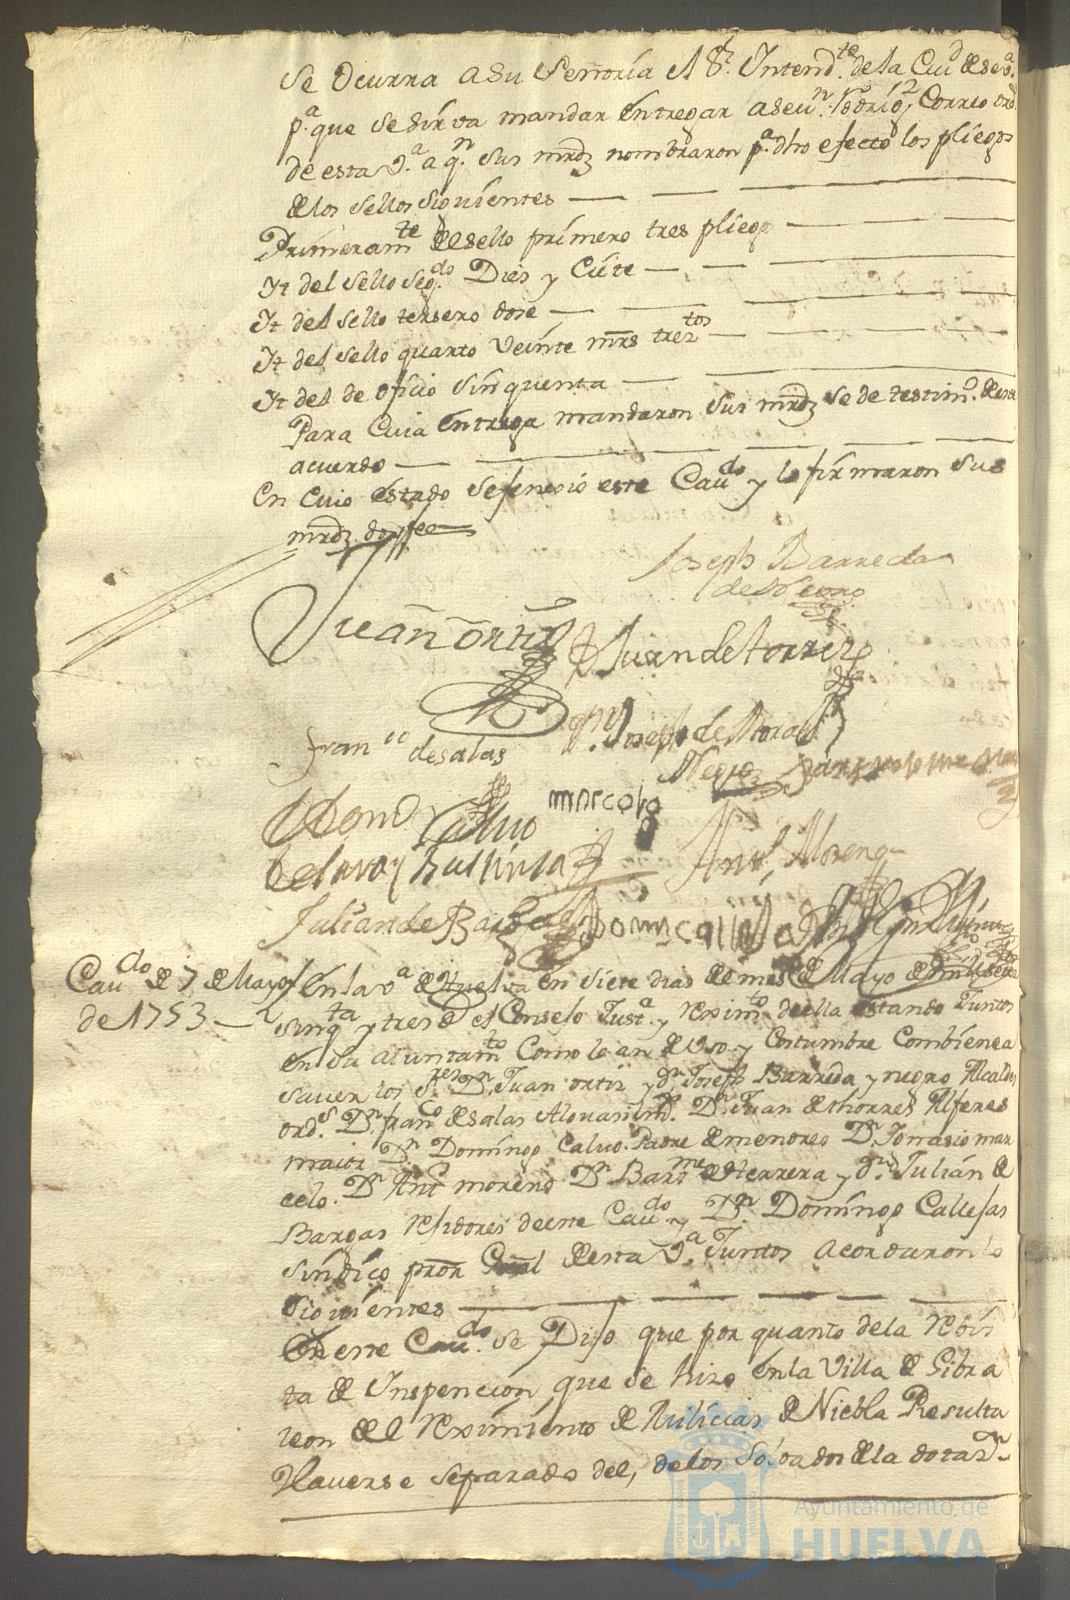 Se ocurra a Su Señoría el Sr. Intendte. de la Ciud. de Seva.
pa. que se sirva mandar entregar a Correo ord.
de esta va. a qn. sus mrdz nombraron pa. dho efecto los pliegos
de los sellos siguientes
Primeramte. del sello primero tres pliegos
It del sello segdo. Dies y Ciete
It del sello tersero dose
It del sello quarto veinte mrs treztos
It del de oficio sinquenta
Para Cuia entrega mandaron sus mrdz se de testimo. de este
acuerdo
En Cuio estado se fenecio este Caudo. y lo firmaron sus
mrdz. doy fee
Joseph Barreda
Juan Ortiz
Dn Juan de torres
Joseph de Mora
Negro
Franco de salas
marcelo
Calvo
Anto. Moreno
Julian de Bargas
Domingo Callejas
Caudo. de 7 de Mayo
de 1753
En la va. de Huelva en siete dias de mes de Mayo de mil setes.
sinqta. y tres el Conselo Justa. y reximto. de ella estando Juntos
en su aiuntamto. Como lo an de Uso y Costumbre Combiene a
saver los Sres. Dn. Juan ortiz y dn. Joseph Barreda y negro Alcaldes
ords. Dn. franco. de salas Dn. Juan de thorres Alferes
maior Dn. Domingo Calvo Padre de menores Dn. Tomasio mar
celo. Dn. Anto. moreno Dn. Barme. de Herrera y dn. Julián de
Bargas rexidores de este Caudo. y Dn. Domingo Callejas
síndico pror. Gral de esta va. Juntos acordaron lo
siguientes
En este Caudo. se Dijo que por quanto de la rebis
ta de Inspencion que se hizo en la Villa de Gibra
leon del reximiento de Milicias de Niebla Resulta
Haverse separado del, de los Soldados de la dotasn.
Ayuntamiento de
HUELVA